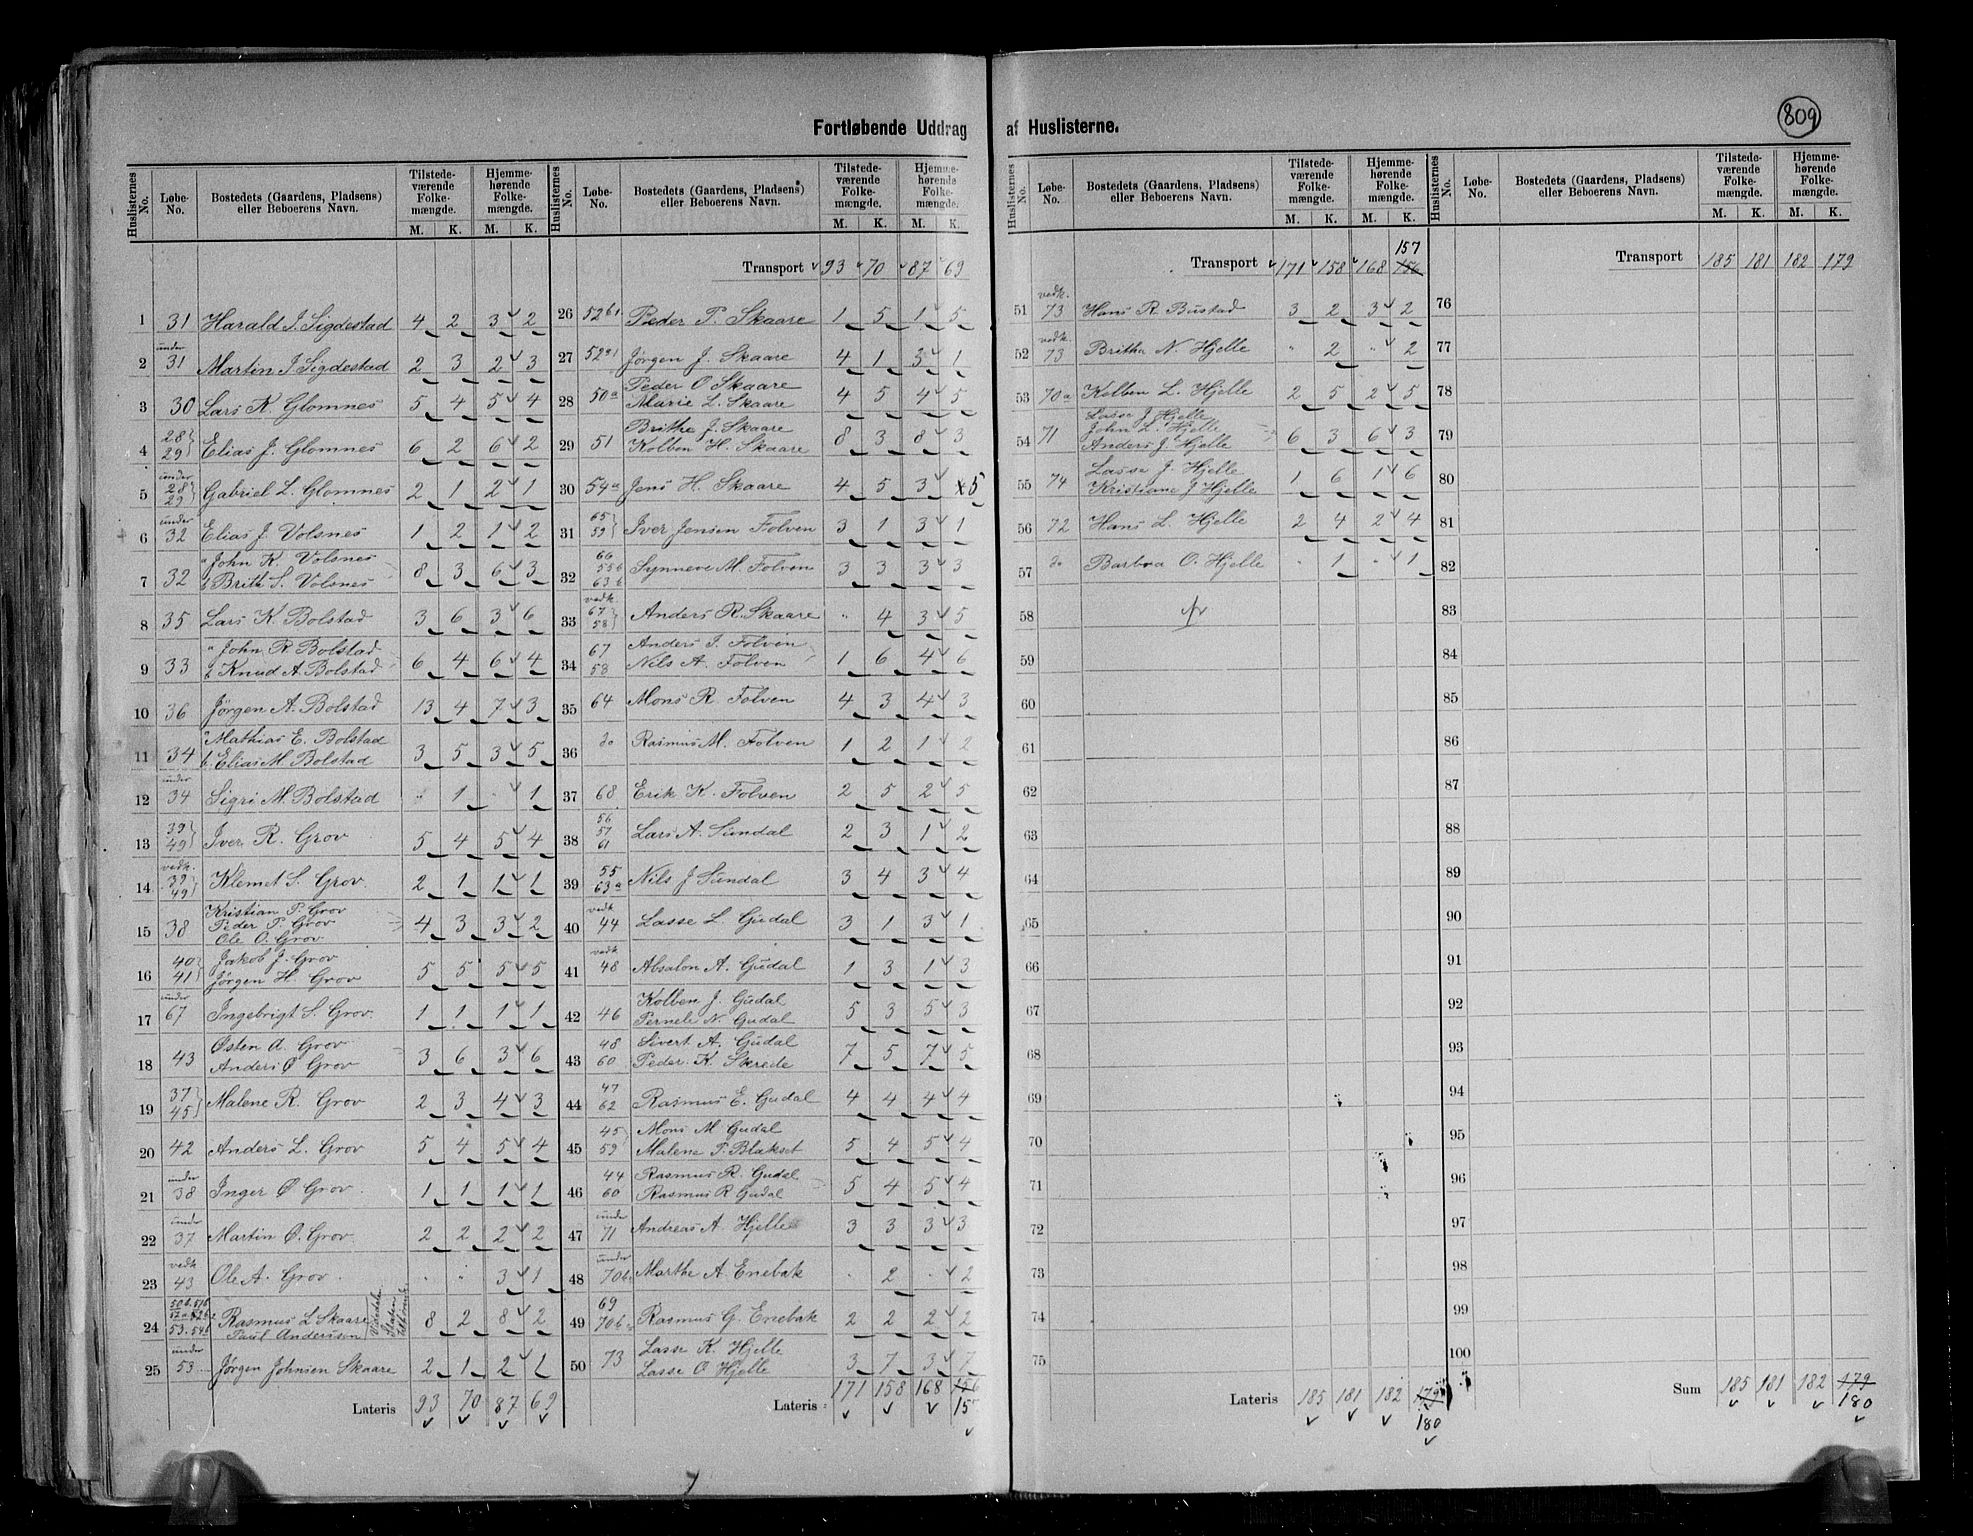 Fortløbende Uddrag af Huslisterne.
809
Huslisternes No. | Løbe-No. | Bostedets (Gaardens, Pladsens) eller Beboerens Navn. | Tilstedeværende Folkemængde. M. K. | Hjemmehørende Folkemængde. M. K.
1 31 Harald J. Sigdestad 4 2 3 2
2 under 31 Martin J Sigdestad 2 3 2 3
3 30 Lars K. Glomnes 5 4 5 4
4 28 29 Elias J. Glomnes 6 2 6 2
5 under 28 29 Gabriel L. Glomnes 2 1 2 1
6 under 32 Elias J. Volsnes 1 2 1 2
7 32 a John K. Volsnes
b Brith S. Volsnes 8 3 6 3
8 35 Lars K. Bolstad 3 6 3 6
9 33 a John R. Bolstad
b Knud A. Bolstad 6 4 6 4
10 36 Jørgen A. Bolstad 13 4 7 3
11 34 a Mathias E. Bolstad
b. Elias M. Bolstad 3 5 3 5
12 under 34 Sigri M. Bolstad " 1 " 1
13 39 49 Iver R. Grov 5 4 5 4
14 vedk. 39 49 Klemet S. Grov. 2 1 1 1
15 38 Kristian P. Grov
Peder P. Grov
Ole O. Grov 4 3 3 2
16 40 41 Jakob J. Grov
Jørgen H. Grov 5 5 5 5
17 under 67 Ingebrigt S. Grov. 1 1 1 1
18 43 Østen A. Grov
Anders Ø Grov 3 6 3 6
19 37 45 Malene R. Grov 2 3 4 3
20 42 Anders L. Grov 5 4 5 4
21 under 38 Inger Ø Grov. 1 1 1 1
22 under 37 Martin Ø. Grov. 2 2 2 2
23 vedk 43 Ole A. Grov. " " 3 1
24 Rasmus L Skaare
Paul Andersen 8 2 8 2
25 under 53 Jørgen Johnsen Skaare 2 1 2 1
Lateris 93 70 87 69
Huslisternes No. | Løbe-No. | Bostedets (Gaardens, Pladsens) eller Beboerens Navn. | Tilstedeværende Folkemængde. M. K. | Hjemmehørende Folkemængde. M. K.
Transport 93 70 87 69
26 52b1 Peder P. Skaare 1 5 1 5
27 52a1 Jørgen J. Skaare 4 1 3 1
28 50a Peder O Skaare
Marie L. Skaare 4 5 4 5
29 51 Brithe J. Skaare
Kolben H. Skaare 8 3 8 3
30 54a Jens H. Skaare 4 5 3 5
31 65 59 Iver Jensen Folven 3 1 3 1
32 66 55b 63b Synneve M. Folven 3 3 3 3
33 vedk. 67 58 Anders R. Skaare " 4 3 5
34 67 58 Anders I. Folven
Nils A. Folven 1 6 4 6
35 64 Mons R. Folven 4 3 4 3
36 do Rasmus M. Folven 1 2 1 2
37 68 Erik K. Folven 2 5 2 5
38 56 57 61 Lars A. Sundal 2 3 1 2
39 55 63a Nils J Sundal 3 4 3 4
40 vedk 44 Lasse L. Gudal 3 1 3 1
41 vedk 48 Absalon A. Gudal 1 3 1 3
42 46 Kolben J. Gudal
Pernele N. Gudal 5 3 5 3
43 48 60 Sivert A. Gudal
Peder K. Skrede 7 5 7 5
44 47 62 Rasmus E. Gudal 4 4 4 4
45 45 59 Mons M Gudal
Malene P. Blakset 5 4 5 4
46 44 60 Rasmus R. Gudal
Rasmus R Gudal 5 4 5 4
47 under 71 Andreas A. Hjelle 3 3 3 3
48 under 70b Marthe A Enebak " 2 " 2
49 69 70b Rasmus G. Enebak 2 2 2 2
50 73 Lasse K. Hjelle
Lasse O Hjelle 3 7 3 7
Lateris 171 158 168 156
Huslisternes No. | Løbe-No. | Bostedets (Gaardens, Pladsens) eller Beboerens Navn. | Tilstedeværende Folkemængde. M. K. | Hjemmehørende Folkemængde. M. K.
157
Transport 171 158 168 156
51 vedk. 73 Hans R. Bustad 3 2 3 2
52 vedk. 73 Britha N. Hjelle " 2 " 2
53 70a Kolben L. Hjelle 2 5 2 5
54 71 Lasse J Hjelle
John L. Hjelle
Anders J. Hjelle 6 3 6 3
55 74 Lasse J. Hjelle
Kristiane J Hjelle 1 6 1 6
56 72 Hans L. Hjelle 2 4 2 4
57 do Barbra O. Hjelle " 1 " 1
58
59
60
61
62
63
64
65
66
67
68
69
70
71
72
73
74
75
Lateris 185 181 182 179
180
Huslisternes No. | Løbe-No. | Bostedets (Gaardens, Pladsens) eller Beboerens Navn. | Tilstedeværende Folkemængde. M. K. | Hjemmehørende Folkemængde. M. K.
Transport 185 181 182 179
76
77
78
79
80
81
82
83
84
85
86
87
88
89
90
91
92
93
94
95
96
97
98
99
100
Sum 185 181 182 179
180